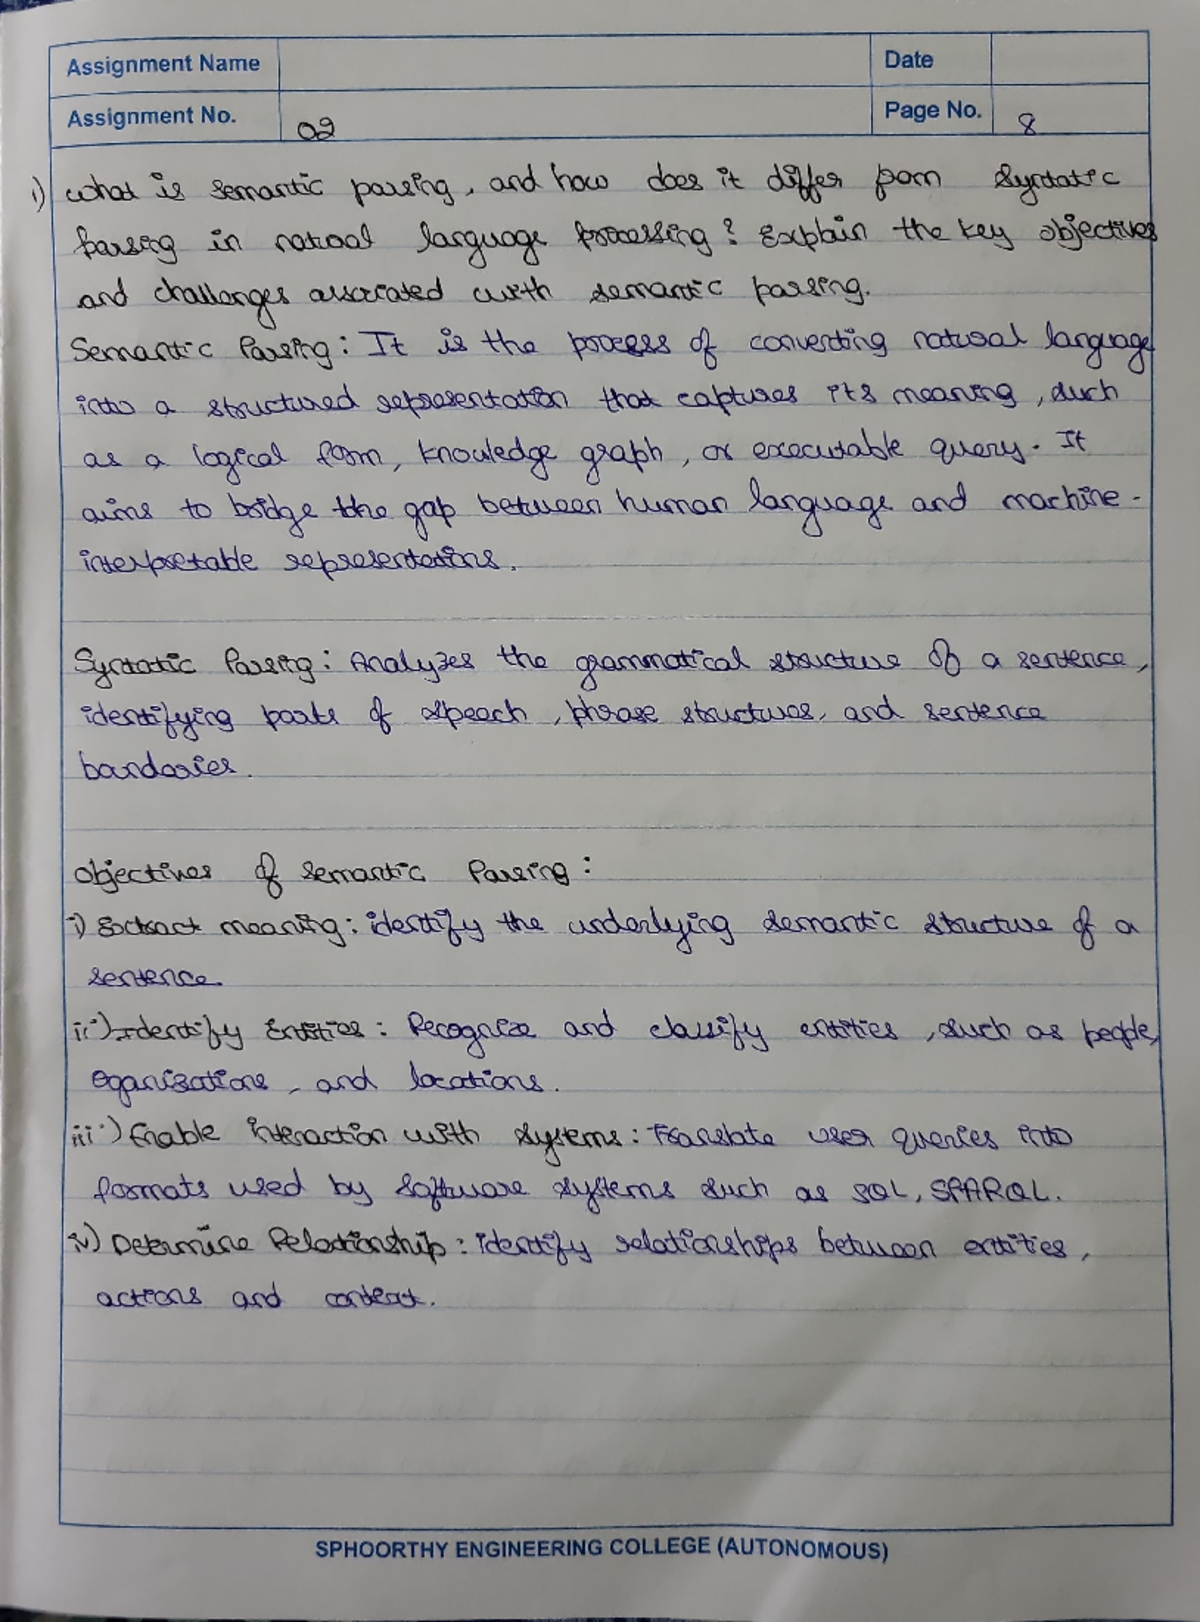 Assignment Name
Date
Assignment No. 02
Page No. 8
1) What is semantic parsing, and how does it differ from Syntatic
Parsing in natural language processing? Explain the key objectives
and challenges associated with semantic parsing.
Semantic Parsing: It is the process of converting natural language
into a structured representation that captures its meaning, such
as a logical form, knowledge graph, or executable query. It
aims to bridge the gap between human language and machine-
interpretable representations.
Syntatic Parsing: Analyzes the grammatical structure of a sentence,
identifying parts of speech, phrase structures, and sentence
bandaries.
Objectives of Semantic Parsing:
i) Extract meaning: identify the underlying semantic structure of a
sentence.
ii) Identify Entities: Recognize and classify entities, such as people,
Oganizations, and locations.
iii) Enable interaction with systems: Translate user queries into
formats used by software systems such as SQL, SPARQL.
iv) Determine Relationship: identify relationships between entities,
actions and context.
SPHOORTHY ENGINEERING COLLEGE (AUTONOMOUS)